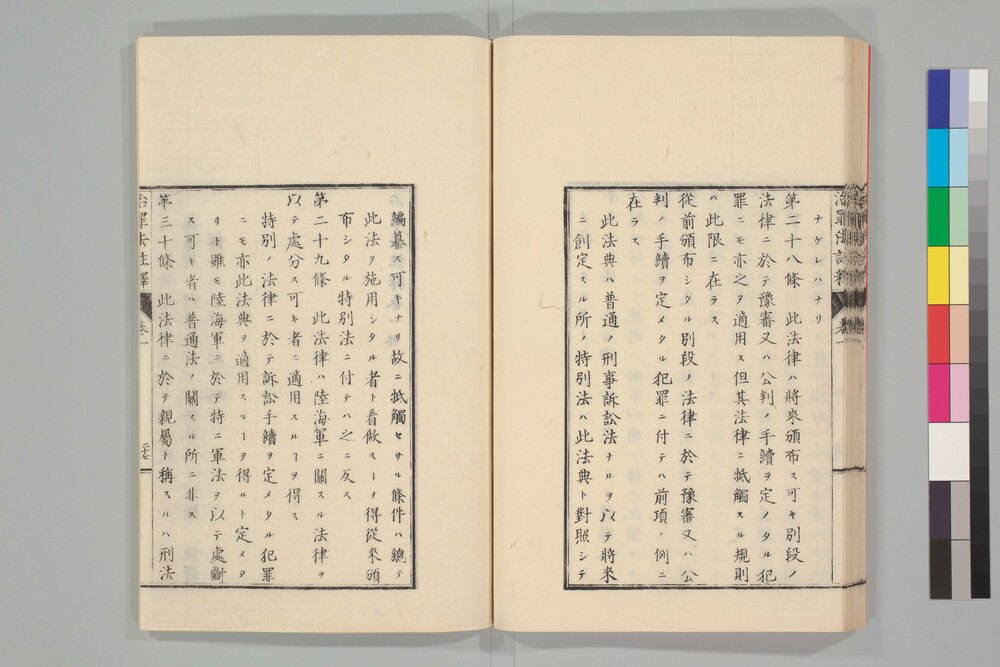 ナケレハナリ
第二十八條 此法律ハ將來頒布ス可キ別段ノ
法律ニ於テ豫審又ハ公判ノ手續ヲ定メタル犯
罪ニモ亦之ヲ適用ス但其法律ニ牴觸スル規則
ハ此限ニ在ラス
從前頒布シタル別段ノ法律ニ於テ豫審又ハ公
判ノ手續ヲ定メタル犯罪ニ付テハ前項ノ例ニ
在ラス
此法典ハ普通ノ刑事訴訟法ナルヲ以テ將來
ニ創定スル所ノ特別法ハ此法典ト對照シテ
編纂ス可キナリ故ニ牴觸セサル條件ハ總テ
此法ヲ施用シタル者ト看做スヿヲ得從來頒
布シタル特別法ニ付テハ之ニ反ス
第二十九條 此法律ハ陸海軍ニ關スル法律ヲ
以テ處分ス可キ者ニ適用スルヿヲ得ス
特別ノ法律ニ於テ訴訟手續ヲ定メタル犯罪
ニモ亦此法典ヲ適用スルヿヲ得ルト定メタ
リト雖モ陸海軍ニ於テ特ニ軍法ヲ以テ處斷
ス可キ者ハ普通法ノ關スル所ニ非ス
第三十條 此法律ニ於テ親屬ト稱スルハ刑法
治罪法註釋 卷一 二十七